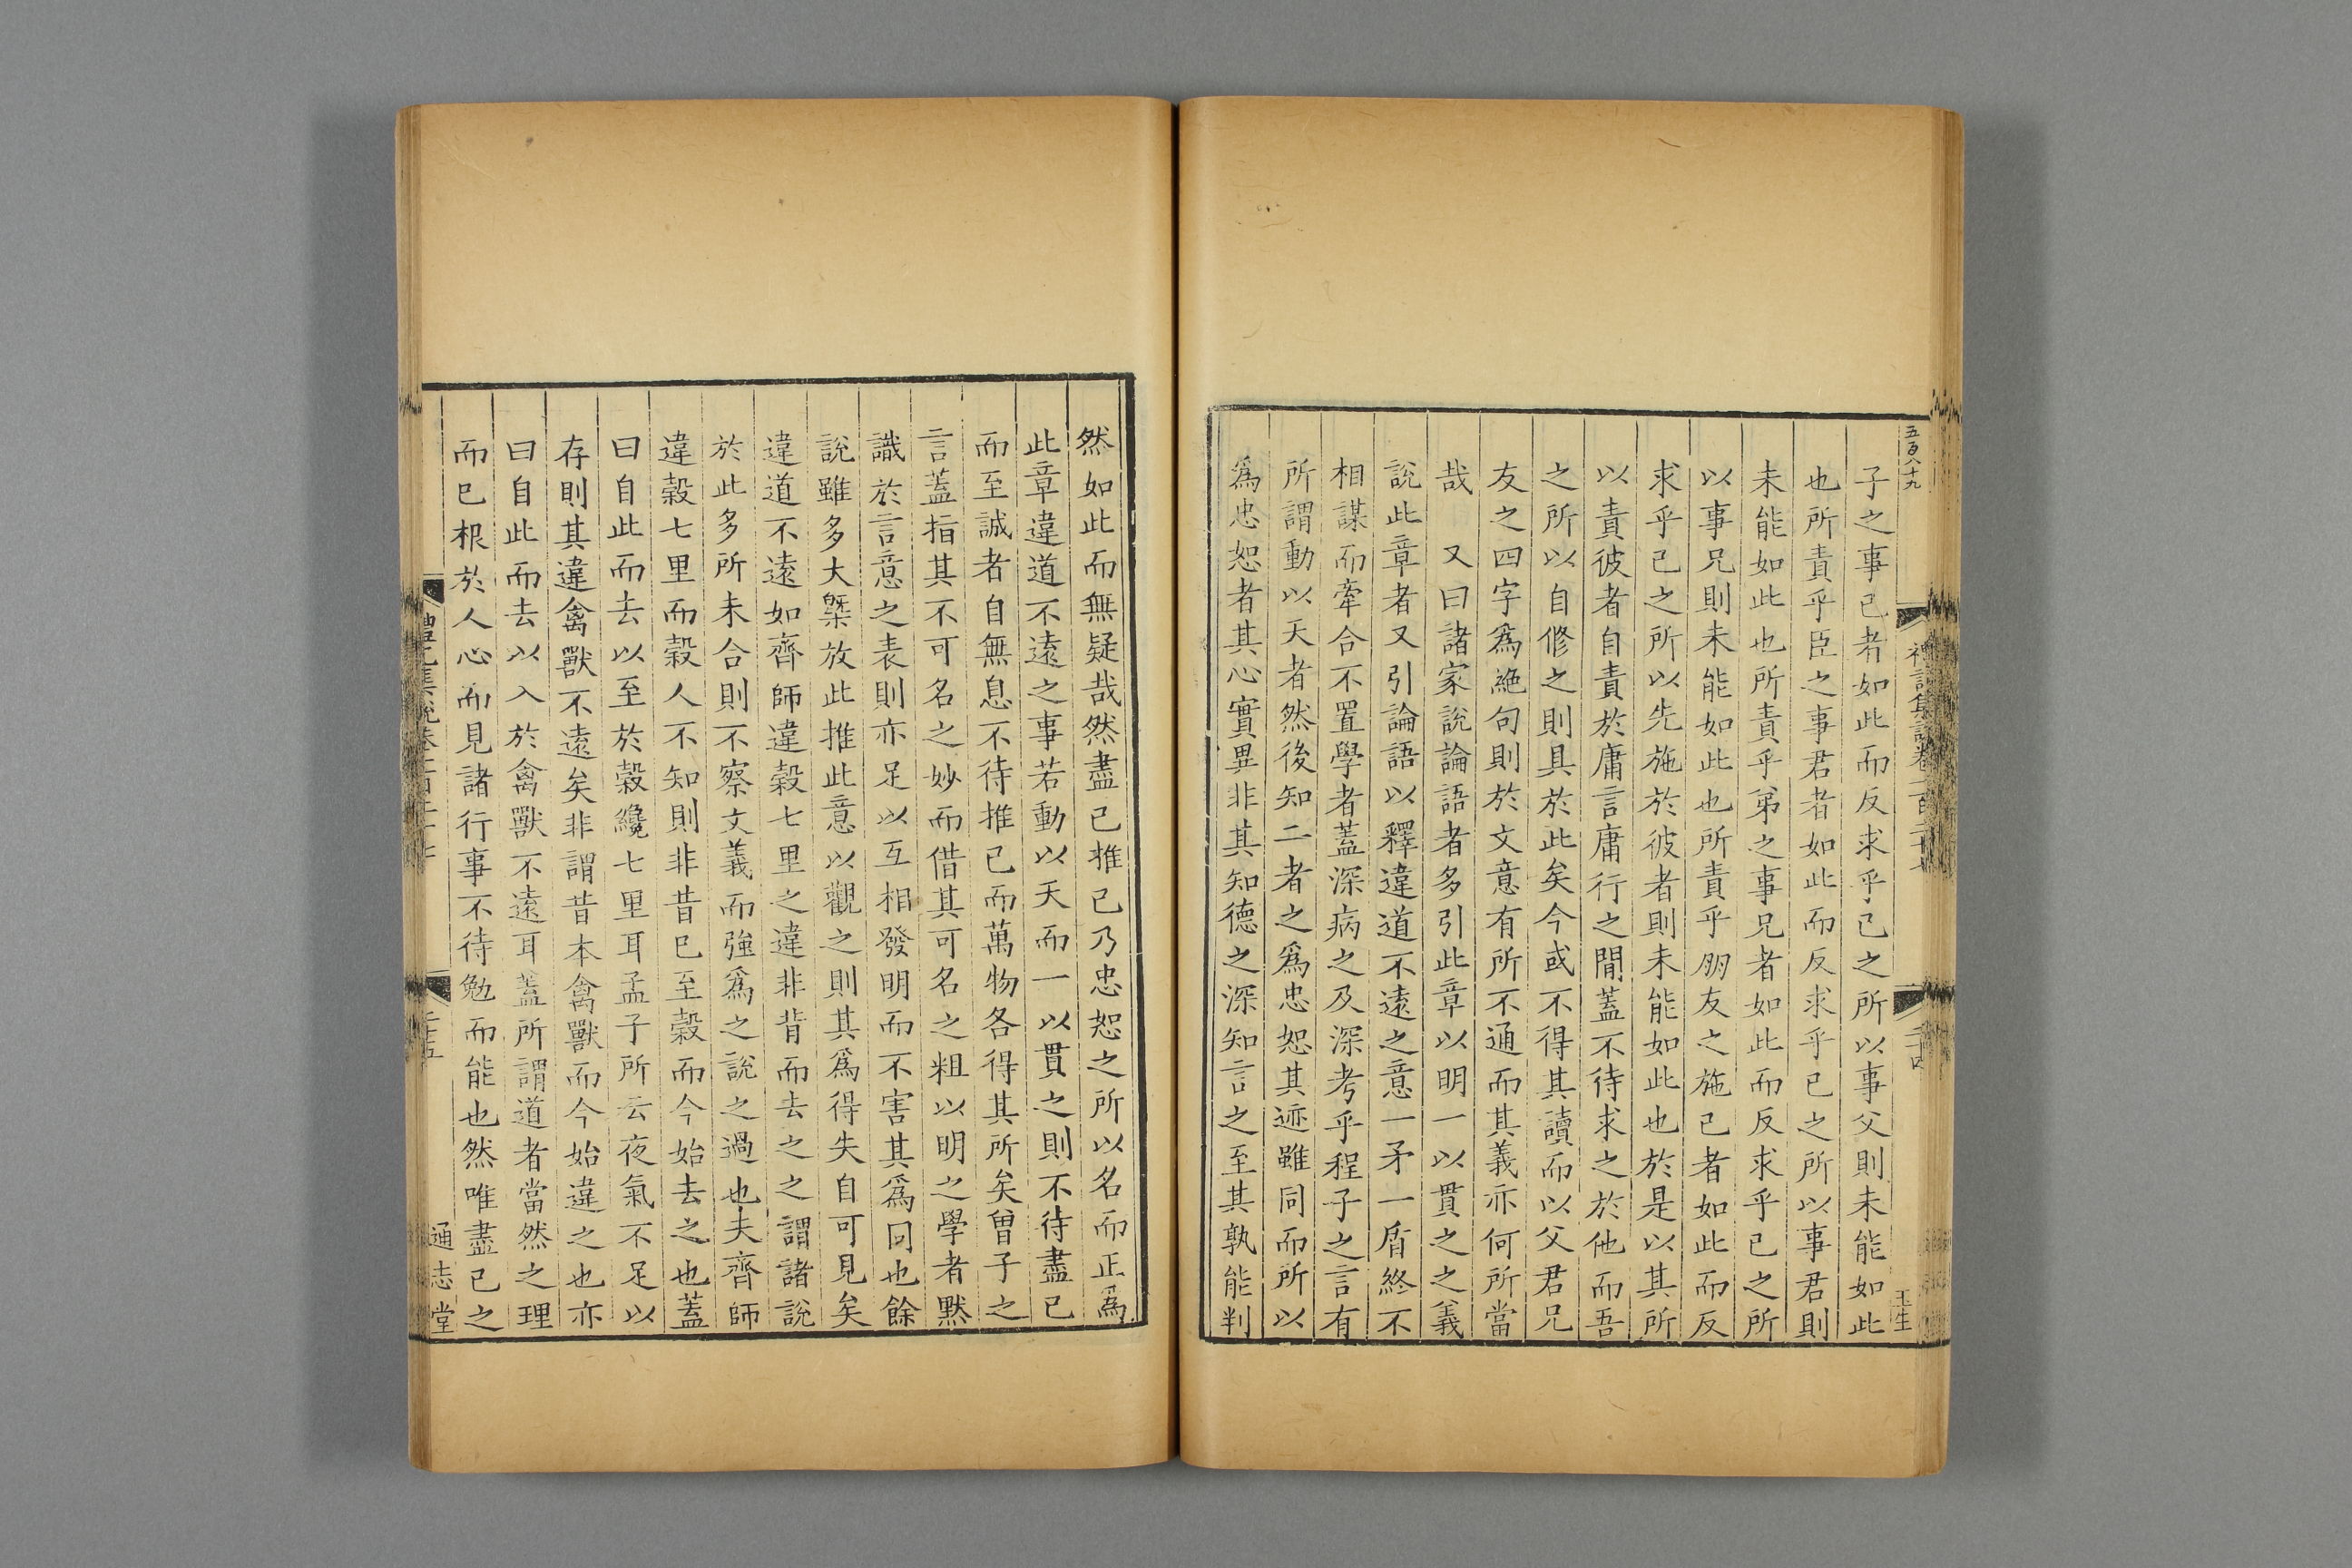 五百八十九
子之事己者如此而反求乎己之所以事父則未能如此
也所責乎臣之事君者如此而反求乎已之所以事君則
未能如此也所責乎弟之事兄者如此而反求乎已之所
以事兄則未能如此也所責乎朋友之施己者如此而反
求乎己之所以先施於彼者則未能如此也於是以其所
以責彼者自責於庸言庸行之間蓋不待求之於他而吾
之所以自修之則具於此矣今或不得其讀而以父君兄
友之四字爲絶句則於文意有所不通而其義亦何所當
哉　又曰諸家說論語者多引此章以明一以貫之之義
說此章者又引論語以釋違道不遠之意一矛一盾終不
相謀而牽合不置學者蓋深病之及深考乎程子之言有
所謂動以天者然後知二者之爲忠恕其迹雖同而所以
爲忠恕者其心實異非其知德之深知言之至其孰能判
然如此而無疑哉然盡己推己乃忠恕之所以名而正爲
此章違道不遠之事若動以天而一以貫之則不待盡己
而至誠者自無息不待推己而萬物各得其所矣曾子之
言蓋指其不可名之妙而借其可名之粗以明之學者默
識於言意之表則亦足以互相發明而不害其爲同也餘
說雖多大槩放此推此意以觀之則其爲得失自可見矣
違道不遠如齊師違穀七里之違非背而去之之謂諸說
於此多所未合則不察文義而強爲之說之過也夫齊師
違穀七里而穀人不知則非昔已至穀而今始去之也蓋
曰自此而去以至於穀纔七里耳孟子所云夜氣不足以
存則其違禽獸不遠矣非謂昔本禽獸而今始違之也亦
曰自此而去以入於禽獸不遠耳蓋所謂道者當然之理
而已根於人心而見諸行事不待勉而能也然唯盡己之
通志堂